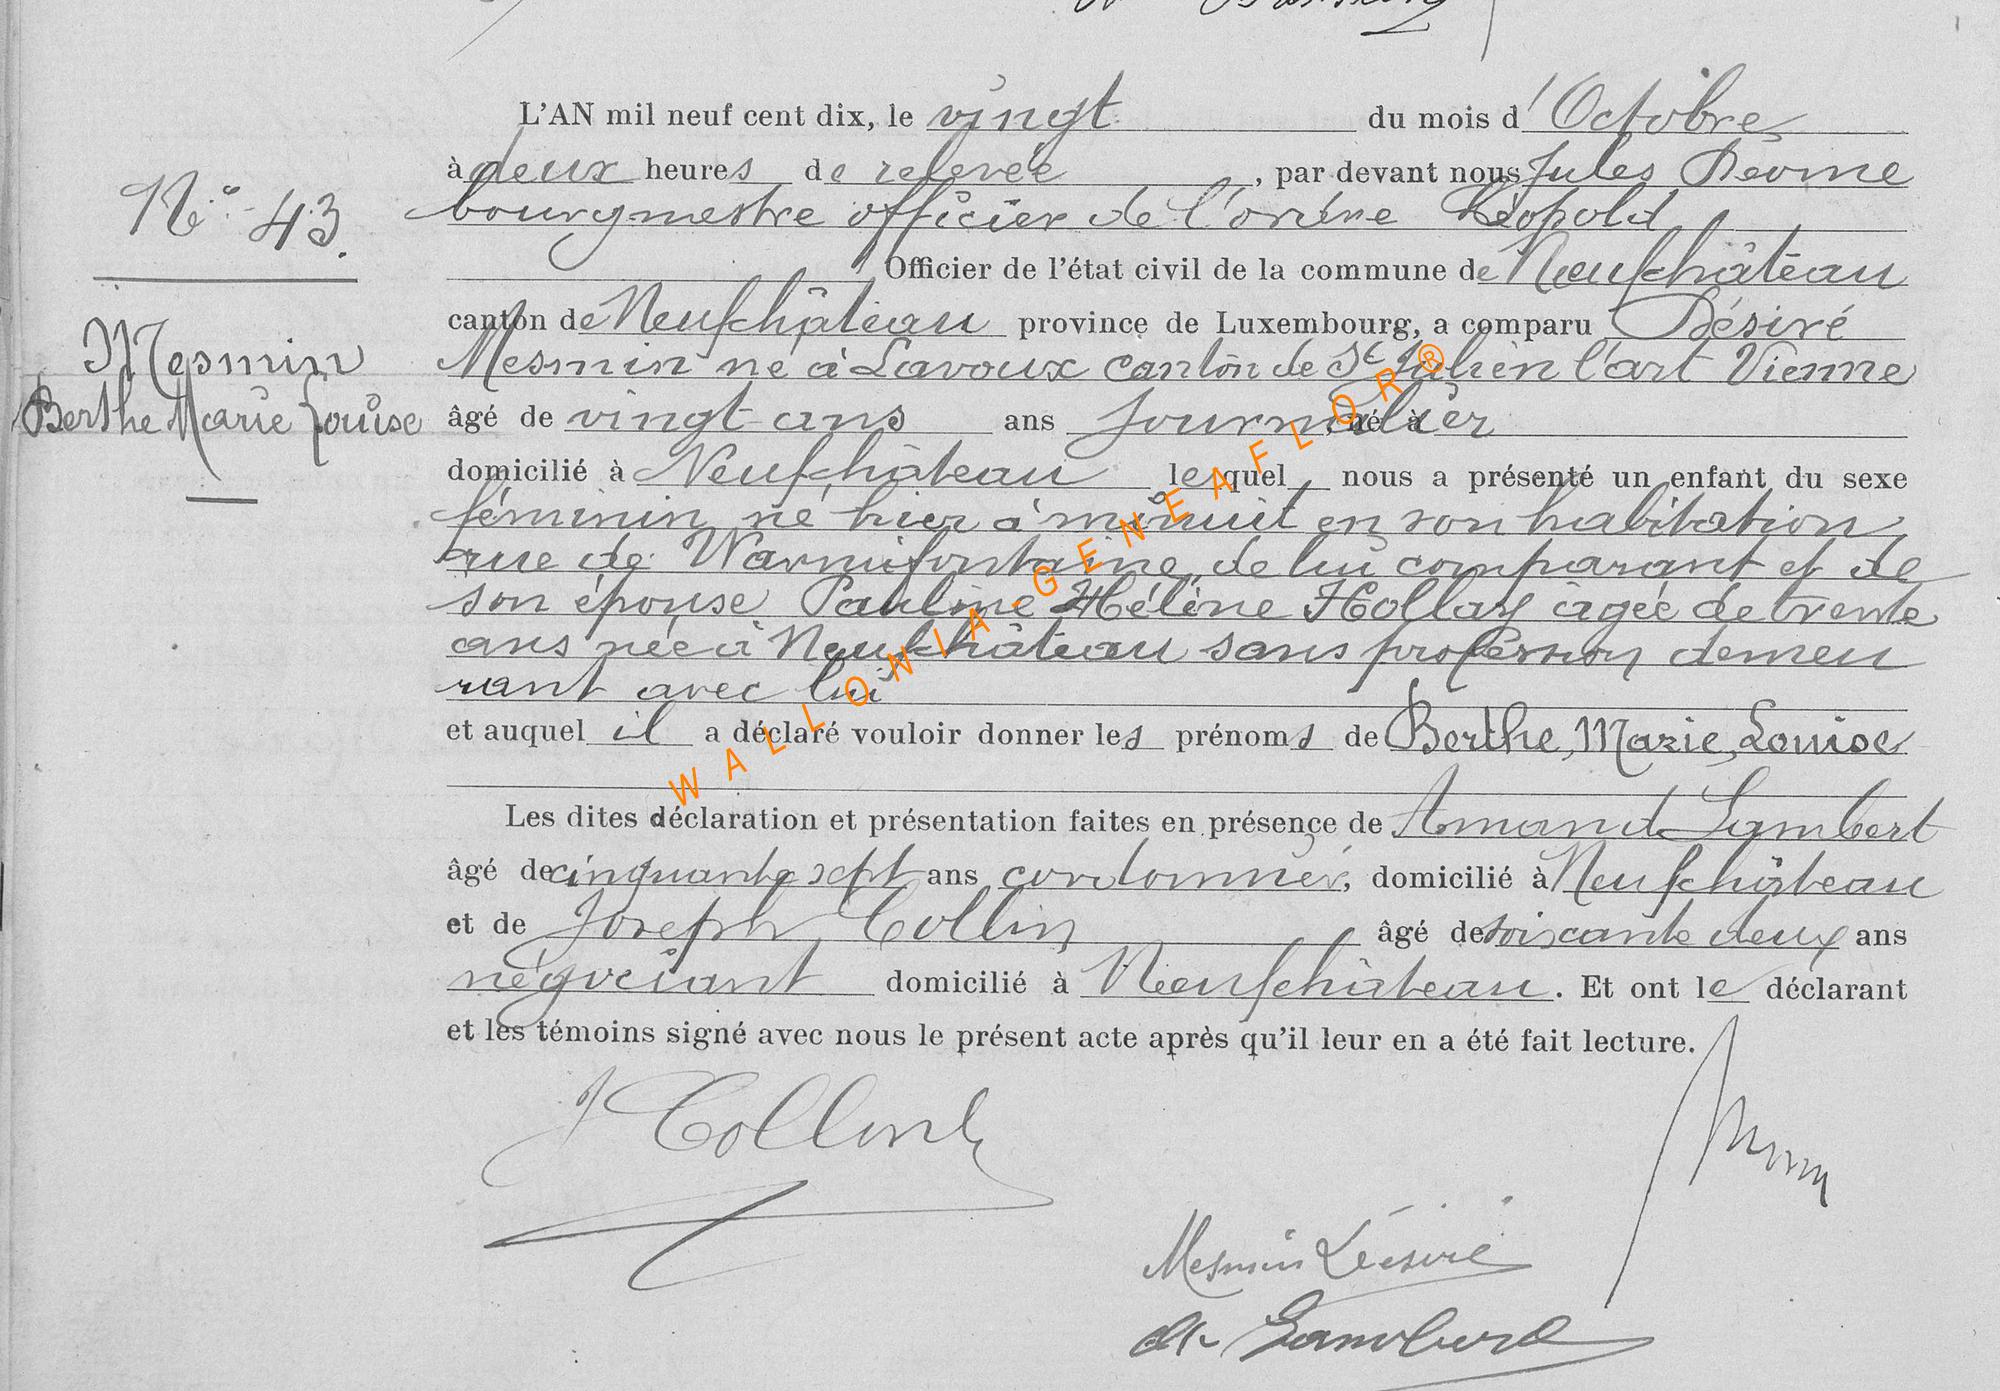 L'AN mil neuf cent dix, le vingt du mois d'Octobre
à deux heures de relevée, par devant nous Jules
bourgmestre officier de l'ordre Léopold
Officier de l'état civil de la commune de Neufchâteau
N° 43.
canton de Neufchâteau province de Luxembourg, a comparu Désiré
Mesmin né à Lavoux canton de St Julien l'art Vienne
Mesmin
Berthe Marie Louise
âgé de vingt ans ans journalier, né à
domicilié à Neufchâteau lequel nous a présenté un enfant du sexe
féminin né hier à minuit en son habitation
rue de Warmifontaine, de lui comparant et de
son épouse Pauline Hélène Hollay âgée de trente
ans née à Neufchâteau sans profession demeu
rant avec lui
et auquel il a déclaré vouloir donner les prénoms de Berthe, Marie, Louise
Les dites déclaration et présentation faites en présence de Amand Lambert
âgé de cinquante sept ans cordonnier, domicilié à Neufchâteau
et de Joseph Collin âgé de soixante deux ans
négociant domicilié à Neufchâteau. Et ont le déclarant
et les témoins signé avec nous le présent acte après qu'il leur en a été fait lecture.
J Collin
Mesmin Désiré
Lambert
WALLONIA-GENEAFLOR®